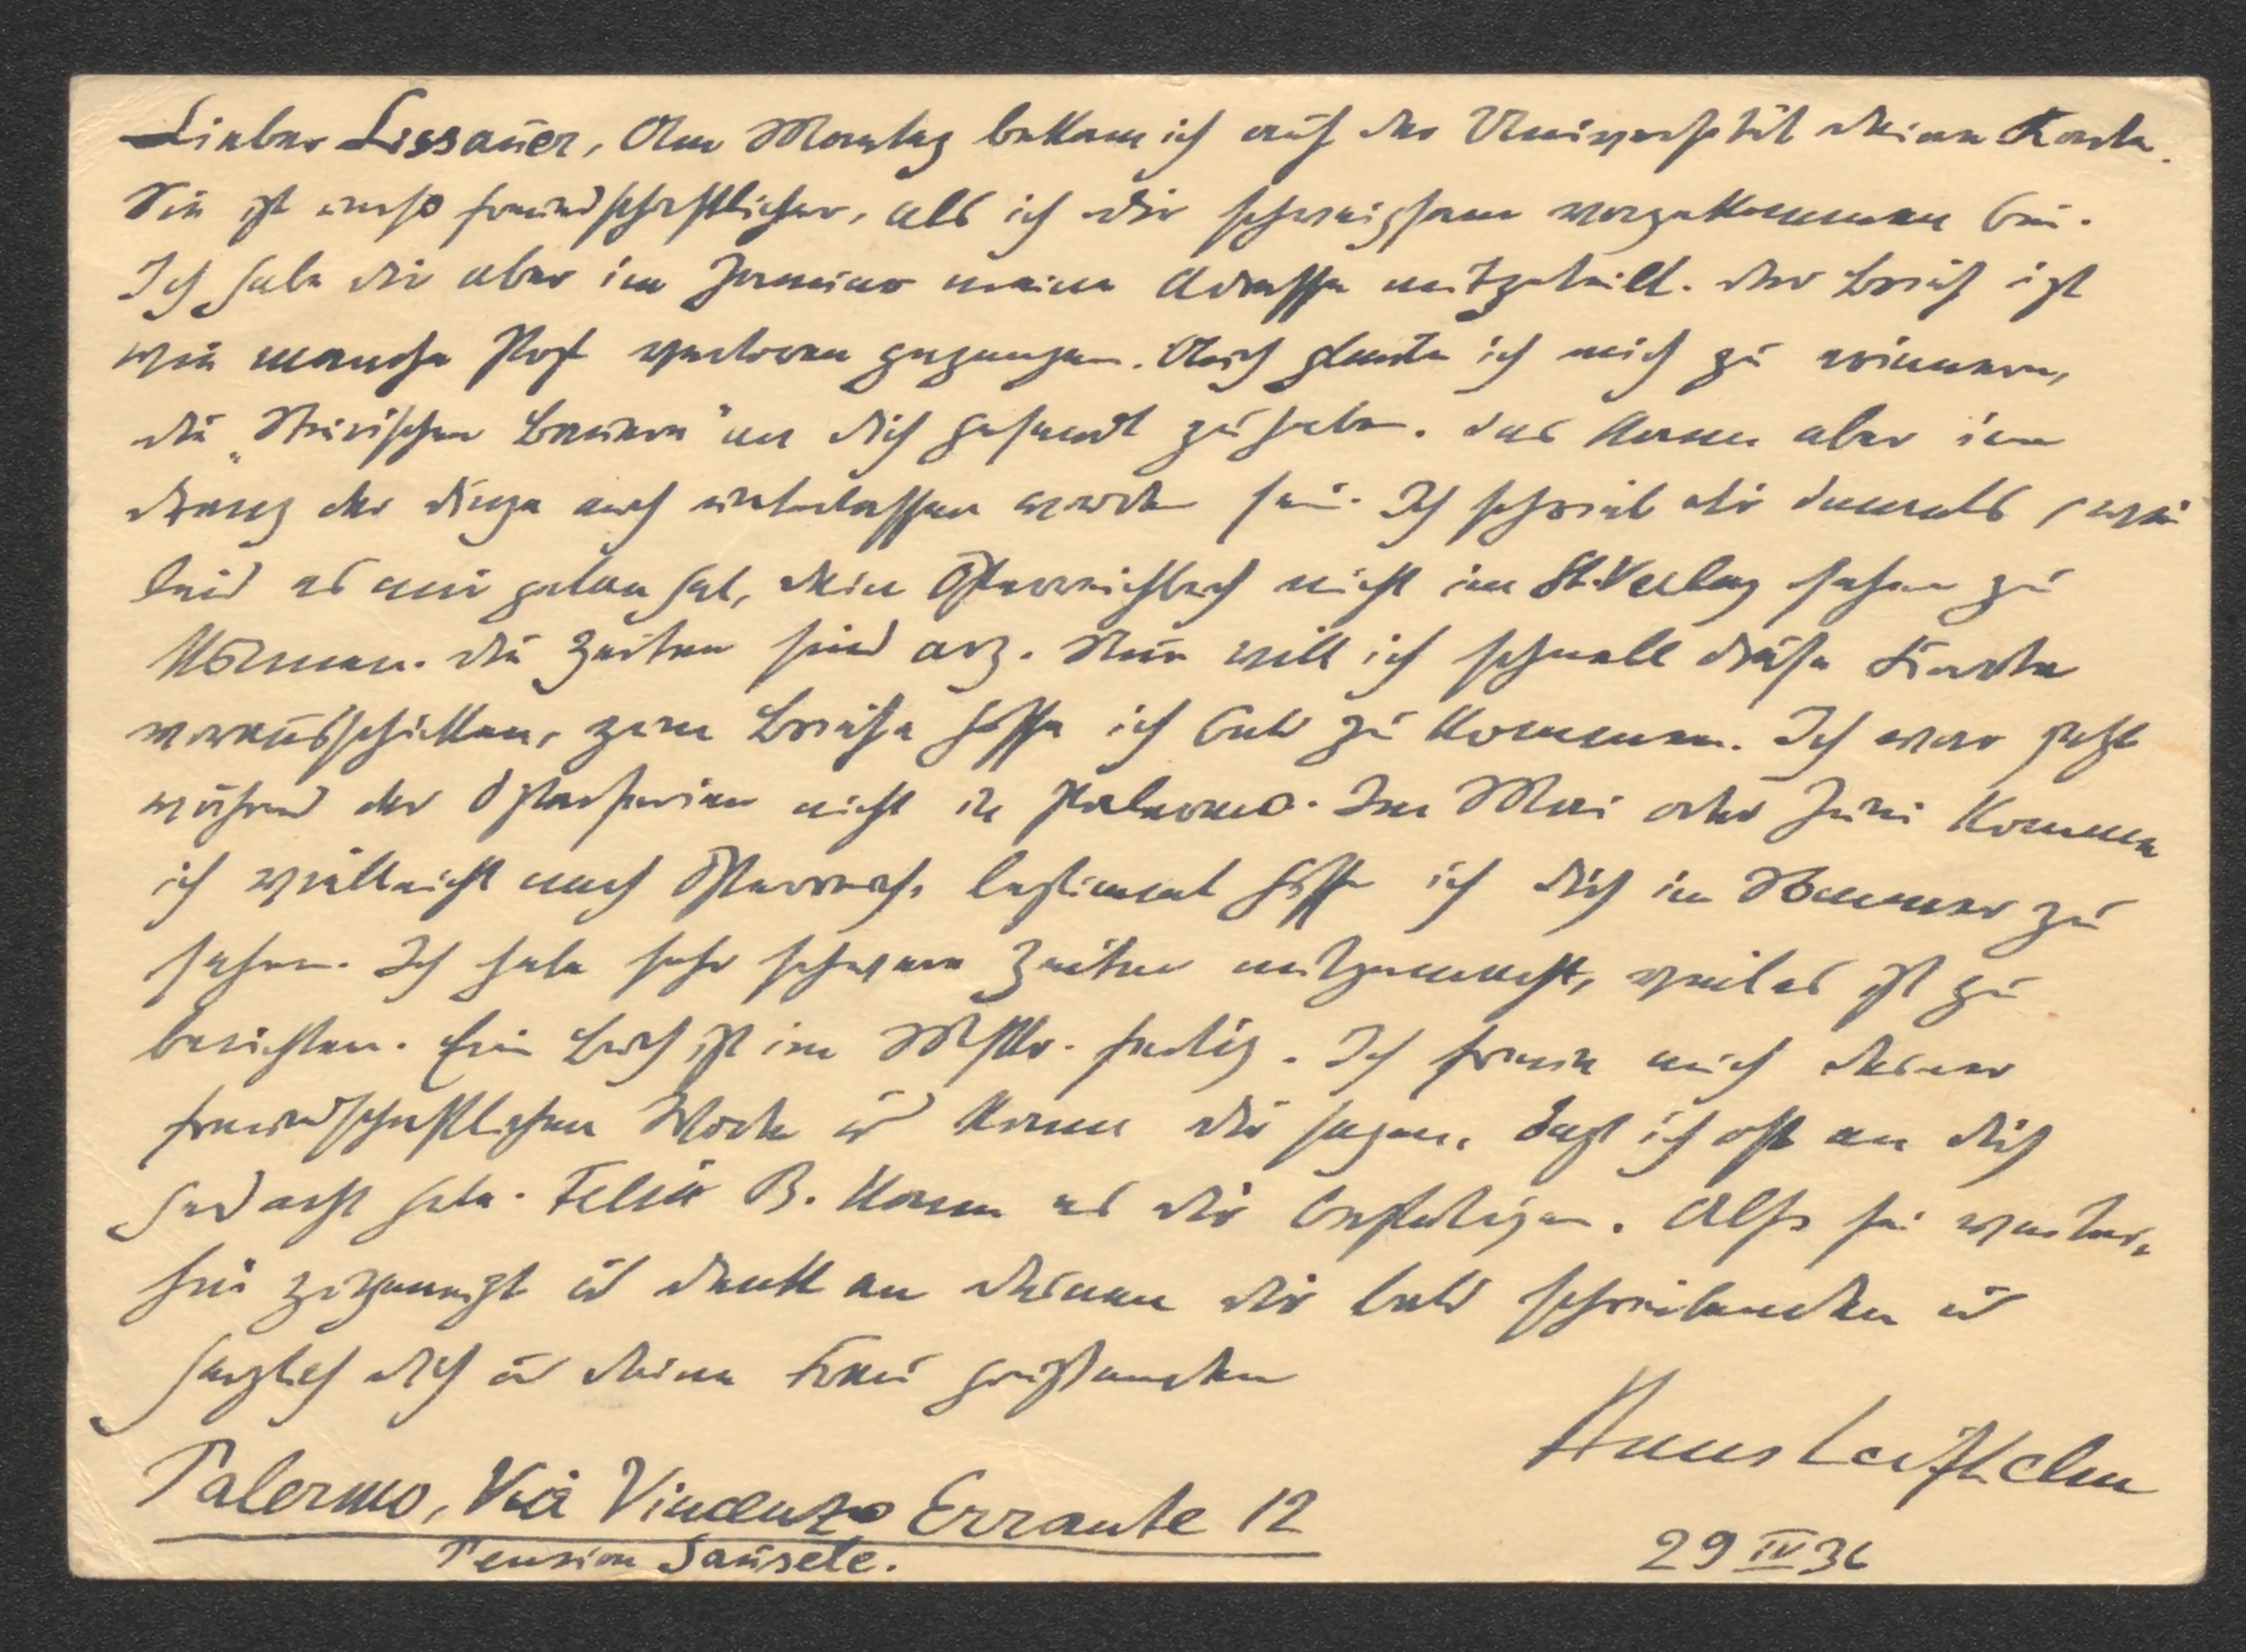 Lieber Lissauer, Am Montag bekam ich auf der Universität deine Karte.
Sie ist umso freundschaftlicher, als ich dir schweigsam vorgekommen bin.
Ich habe dir aber im Jänner meine Adresse mitgeteilt. Der Brief ist
wie manche Post verloren gegangen. Auch glaubte ich mich zu erinnern,
die „Steirischen Bauern" an dich gesandt zu haben. Das kann aber im
Drang der Dinge auch unterlassen worden sein. Ich schrieb dir damals, wie
leid es mir getan hat, dein Österreichbuch nicht im St. Verlag sehen zu
können. Die Zeiten sind arg. Nun will ich schnell diese Karte
vorausschicken, zum Briefe hoffe ich bald zu kommen. Ich war jetzt
während der Osterferien nicht in Palermo. Im Mai oder Juni komme
ich vielleicht nach Österreich, bestimmt hoffe ich dich im Sommer zu
sehen. Ich habe sehr schwere Zeiten mitgemacht, viel es ist zu
berichten. Ein Buch ist im Mskr. fertig. Ich freue mich deiner
freundschaftlichen Worte u kann dir sagen, dass ich oft an dich
gedacht habe. Felix B. kann es dir bestätigen. Also sei weiter-
hin zugeneigt u denk an deinen dir bald schreibenden u
herzlich dich u deine Frau grüssenden
Hans Leifhelm
Palermo, Via Vincenzo Errante 12
Pension Sausele.
29 IV 36